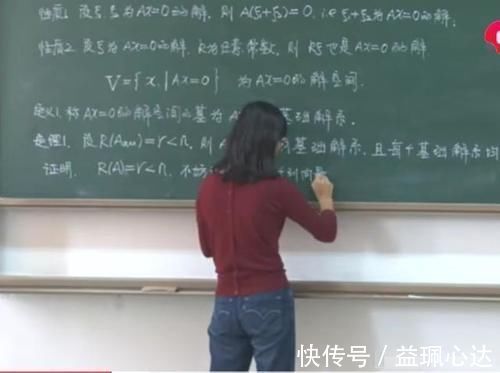 性质1. 设ξ₁ ξ₂为AX=0的解, 则 A(ξ₁+ξ₂)=0, i.e ξ₁+ξ₂为AX=0的解.
性质2. 设ξ为AX=0的解, k为任意常数, 则 kξ也是AX=0的解
V={x | AX=0} 为AX=0的解空间.
定义1. 称AX=0的解空间的基为A 基础解系.
定理1. 设R(Aₘₓₙ)=r<n, 则A 基础解系, 且每个基础解系均
证明. R(A)=r<n, 不妨 列向量
快传号 / 益珮心达